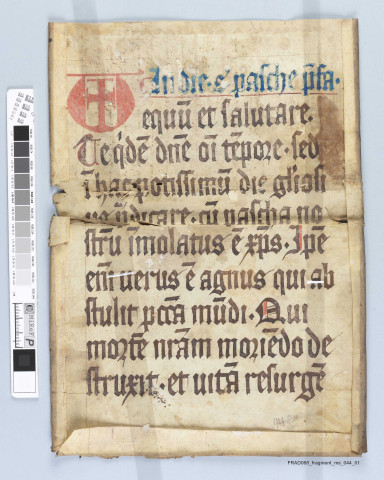 In die s̄ pasche p̄fa.
equū et salutare.
Te q̇dē dn̄e oī tēpore. sed
ī hac potissimū die gl̄iosi
cū pascha no
strū īmolatus ē xp̄s. Ip̄e
enī uerus ē agnus qui ab
stulit pccā mūdi. Qui
mortē nr̄am moriēdo de
struxit. et uitā resurgē
FRAD066_fragment_res_044_01